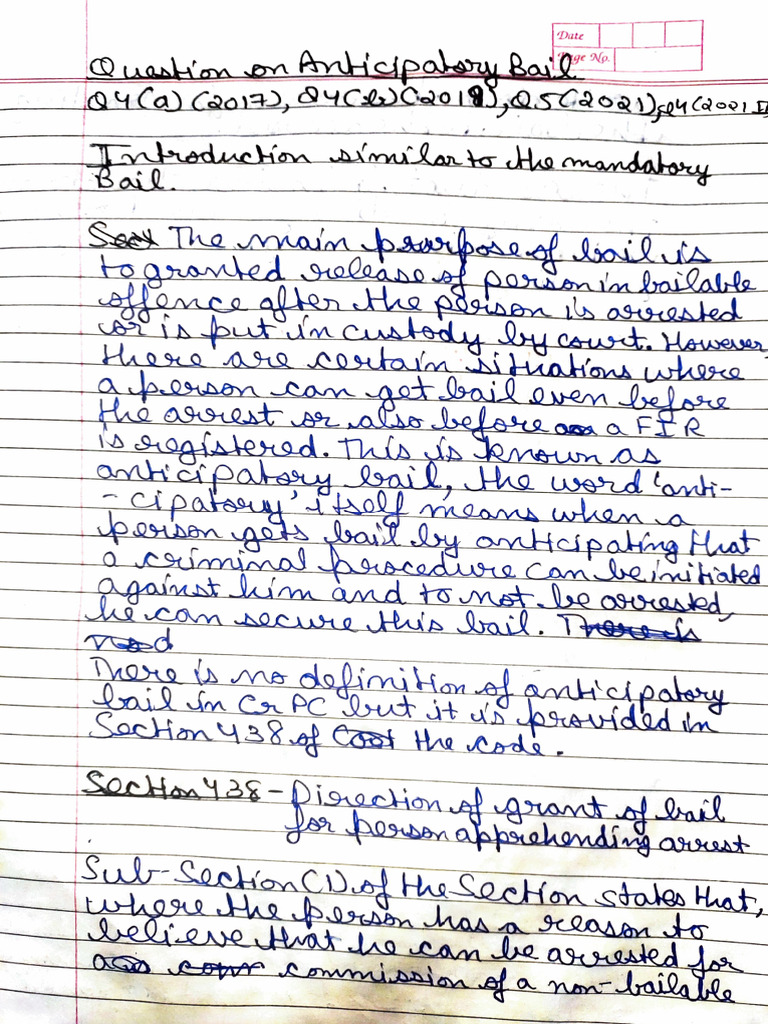 Date
Page No.
Question on Anticipatory Bail
Q4(a) (2017), Q4(b)(2019), Q.5(2021), Q4(2021 II
Introduction similar to the mandatory
Bail.
The main purpose of bail is
to granted release of person in bailable
offence after the person is arrested
or is put in custody by court. However,
there are certain situations where
a person can get bail even before
the arrest or also before a FIR
is registered. This is known as
anticipatory bail, the word 'anti-
-cipatory' itself means when a
person gets bail by anticipating that
a criminal procedure can be initiated
against him and to not be arrested,
he can secure this bail. There is
There is no definition of anticipatory
bail in CrPC but it is provided in
Section 438 of the code.
Section 438 - Direction of grant of bail
for person apprehending arrest
Sub-Section (1) of the Section states that,
where the person has a reason to
believe that he can be arrested for
commission of a non-bailable